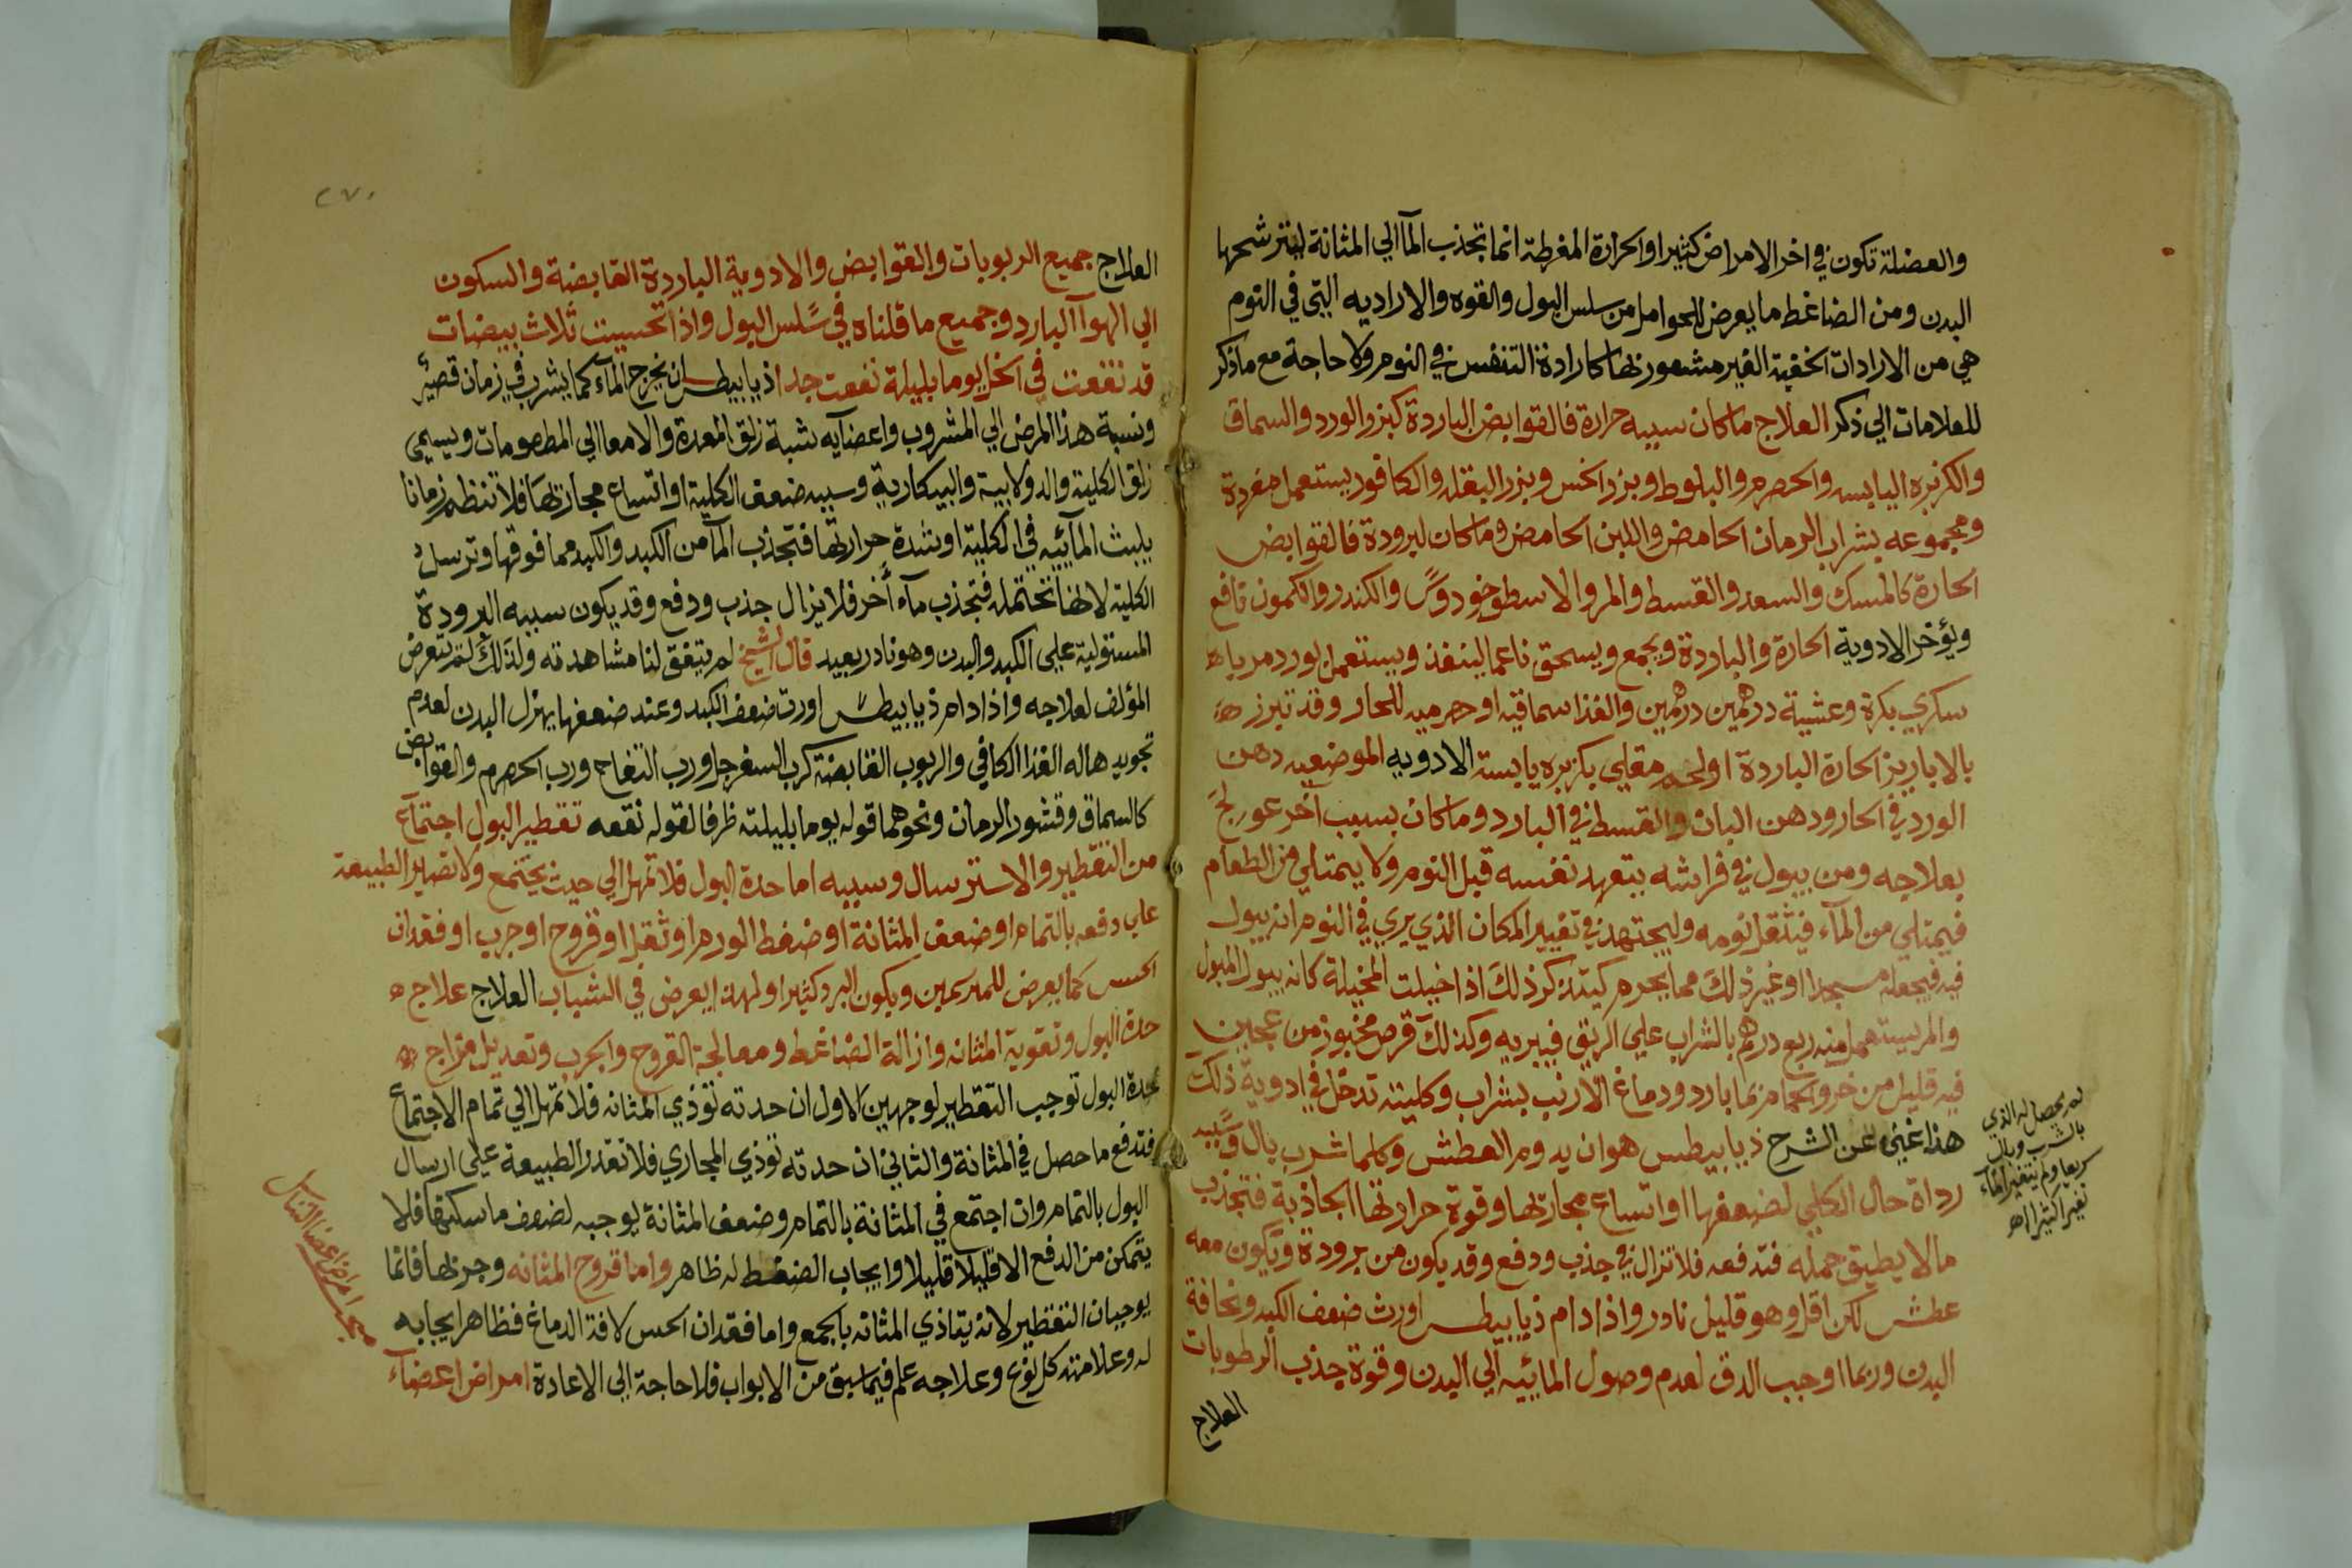 والعضلة تكون في اخر الامراض كثيرا والحرارة المفرطة انما تجذب المآ الي المثانة لتترشحها
البدن ومن الضاغط ما يعرض للحوامل من سلس البول والقوه والاراديه التي في النوم
هي من الارادات الخفية الغير مشعور بها كارادة التنفس في النوم ولا حاجة مع ما ذكر
للعلامات الي ذكر العلاج ما كان سببه حرارة فالقوابض الباردة كبزر الورد والسماق
والكزبره اليابسه والحصرم والبلوط وبزر الخس وبزر البقله والكافور يستعمل مفردة
ومجموعه بشراب الرمان الحامض واللبن الحامض وما كان لبرودة فالقوابض
الحارة كالمسك والسعد والقسط والمر والاسطوخودوس والكندر والكمون نافع
ويؤخر الادوية الحارة والباردة ويجمع ويسحق ناعما لينفذ ويستعمل بورد مربا
سكري بكرة وعشية درهمين درهمين والغذا سماقيه او حصرميه للحار وقد تبرز
بالابازيز الحارة الباردة او لحم مقلي بكزبره يابسة الادويه الموضعيه دهن
الورد في الحار ودهن البان والقسط في البارد وما كان بسبب آخر عولج
بعلاجه ومن يبول في فراشه يتعهد نفسه قبل النوم ولا يمتلي من الطعام
فيمتلي من المآء فيثقل نومه وليجتهد في تغيير المكان الذي يري في النوم انه يبول
فيه فيجعله مسجدا او غير ذلك مما يحرم كيتذكر ذلك اذا خيلت المخيلة كانه يبول المبول
والمر يستعمل منه ربع درهم بالشراب علي الريق فيبريه وكذلك قرص مخبوز من عجين
فيه قليل من خرو الحمام بما بارد ودماغ الارنب بشراب وكليته تدخل في ادوية ذلك
هذا غني عن الشرح ذيابيطس هو ان يدوم العطش وكلما شرب بال وسببه
رداة حال الكلي لضعفها او اتساع مجاريها وقوة حرارتها الجاذبة فتجذب
ما لا يطيق حمله فتدفعه فلا تزال في جذب ودفع وقد يكون من برودة ويكون معه
عطش لكن اقل وهو قليل نادر واذا دام ذيابيطس اورث ضعف الكبد ونحافة
البدن وربما اوجب الدق لعدم وصول المائيه الي البدن وقوة جذب الرطوبات
العلاج
لم يحصل له الذي
بالشرب وبال
سريعا ولم يتغير المآء
تغيرا كثيرا اهـ
٢٧٠
العلاج جميع الربوبات والقوابض والادوية الباردة القابضة والسكون
الي الهوآ البارد وجميع ما قلناه في سلس البول واذا تحسيت ثلاث بيضات
قد نقعت في الخل يوما بليلة نفعت جدا ذيابيطس ان يخرج المآء كما يشرب في زمان قصير
ونسبة هذا المرض الي المشروب واعضآيه نسبة زلق المعدة والامعا الي المطعومات ويسمي
زلق الكلية والدولابية والبيكارية وسببه ضعف الكلية او اتساع مجاريها فلا تنظم زمانا
يلبث المآئيه في الكلية او شدة حرارتها فتجذب المآ من الكبد والكبد مما فوقها وترسل
الكلية لانها تحتمله فتجذب مآء آخر فلا يزال جذب ودفع وقد يكون سببه البرودة
المستولية علي الكبد والبدن وهو نادر بعيد قال الشيخ لم يتفق لنا مشاهدته ولذلك لم يتعرض
المؤلف لعلاجه واذا دام ذيابيطس اورث ضعف الكبد وعند ضعفها يهزل البدن لعدم
تجويدها له الغذا الكافي والربوب القابضة كرب السفرجل ورب التفاح ورب الحصرم والقوابض
كالسماق وقشور الرمان ونحوهما قوله يوما بليلته ظرفا لقوله نقعه تقطير البول اجتمآع
من التقطير والاسترسال وسببه اما حدة البول فلا تمهل الي حيث يجتمع ولا تصابر الطبيعة
علي دفعه بالتمام او ضعف المثانة او ضغط الورم او ثقل او قروح او جرب او فقدان
الحس كما يعرض للمبرسمين ويكون البرد كثيرا ولهذا يعرض في الشباب العلاج علاج
حدة البول وتقوية المثانه وازالة الضاغط ومعالجة القروح والجرب وتعديل مزاج
حدة البول توجب التقطير لوجهين الاول ان حدته تؤذي المثانه فلا تمهل الي تمام الاجتماع
فتدفع ما حصل في المثانة والثاني ان حدته تؤذي المجاري فلا تقدر الطبيعة علي ارسال
البول بالتمام وان اجتمع في المثانة بالتمام وضعف المثانة يوجبه لضعف ماسكتها فلا
يتمكن من الدفع الا قليلا قليلا وايجاب الضغط له ظاهر واما قروح المثانه وجربها فانما
يوجبان التقطير لانه يتاذي المثانه بالجمع واما فقدان الحس لافة الدماغ فظاهر ايجابه
له وعلامته كل نوع وعلاجه علم فيما سبق من الابواب فلا حاجة الي الاعادة امراض اعضآء
مبحث امراض اعضا التناسل